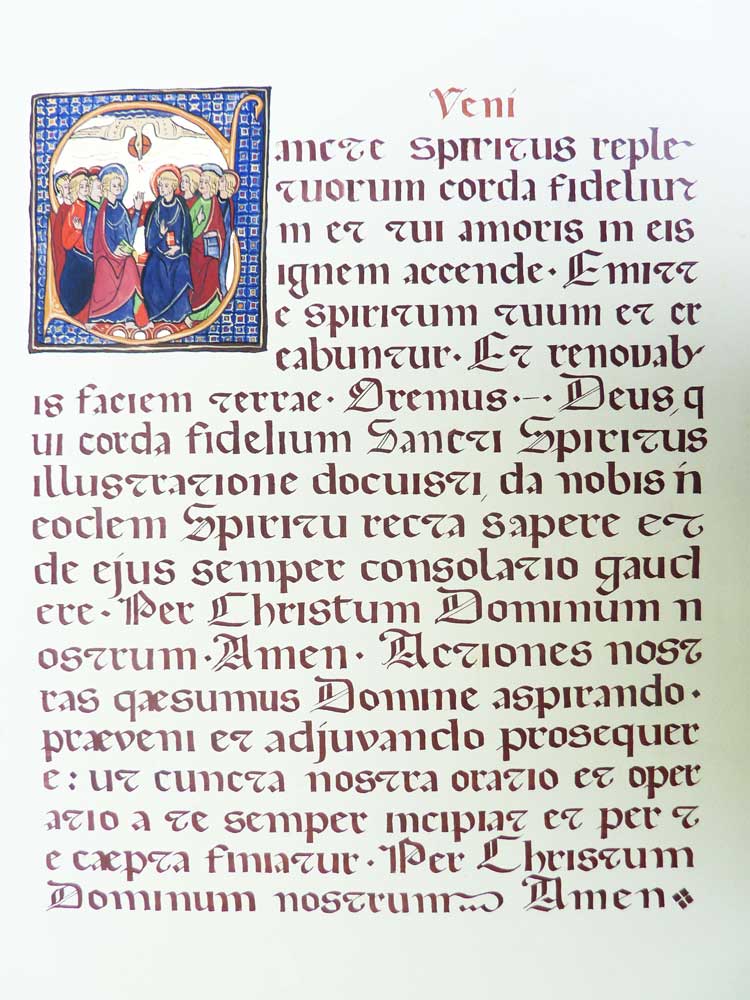 Veni
Sancte spiritus reple-
tuorum corda fideliu
m et tui amoris in eis
ignem accende· Emitt
e spiritum tuum et cr
eabuntur· Et renovab-
is faciem terrae· Oremus·-· Deus, q
ui corda fidelium Sancti Spiritus
illustratione docuisti, da nobis in
eodem Spiritu recta sapere et
de ejus semper consolatio gaud
ere· Per Christum Dominum n
ostrum· Amen· Actiones nost
ras qæsumus Domine aspirando·
præveni et adjuvando prosequer
e: ut cuncta nostra oratio et oper
atio a te semper incipiat et per t
e cæpta finiatur· Per Christum
Dominum nostrum Amen